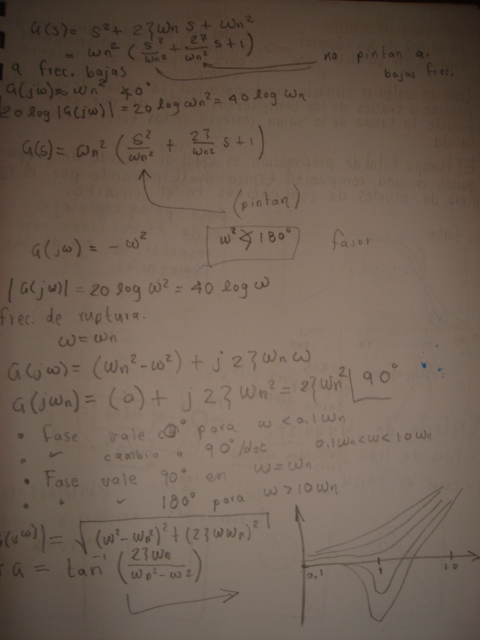 G(s)= s² + 2ζωn s + ωn²
= ωn² ( s²/ωn² + 2ζ/ωn² s + 1 )
no pintan a
bajas frec.
a frec. bajas
G(jω) ≈ ωn² ∡0°
20 log |G(jω)| = 20 log ωn² = 40 log ωn
G(s) = ωn² ( s²/ωn² + 2ζ/ωn² s + 1 )
(pintan)
G(jω) = - ω²
ω² ∡ 180°
fasor
|G(jω)| = 20 log ω² = 40 log ω
frec. de ruptura.
ω = ωn
G(jω) = (ωn² - ω²) + j 2ζ ωn ω
G(jωn) = (0) + j 2ζ ωn² = 2ζωn² ∟90°
• Fase vale 0° para ω < 0.1ωn
• " cambia a 90°/dec 0.1ωn<ω<10ωn
• Fase vale 90° en ω = ωn
• " " 180° para ω > 10ωn
G(jω)| = √(ω² - ωn²)² + (2ζωωn)²
∡G = tan⁻¹ ( 2ζωn / ωn² - ω² )
0.1 1 10